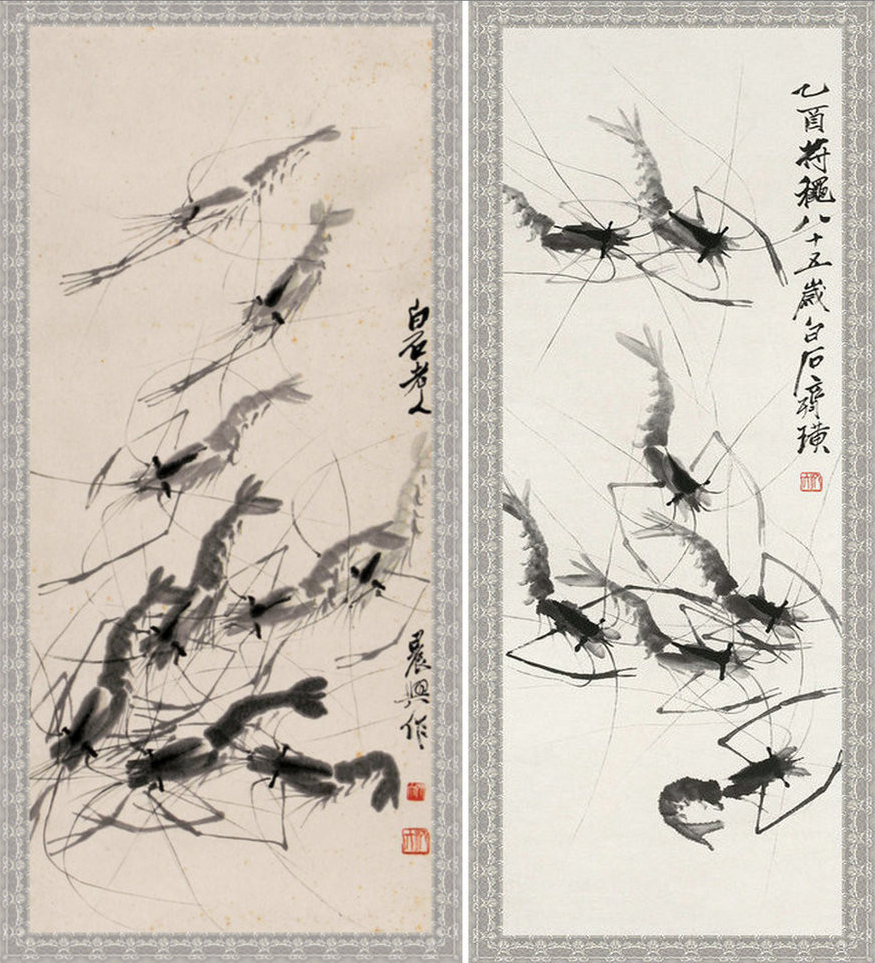 白石老人
晨興作
乙酉 八十五歲白石齊璜